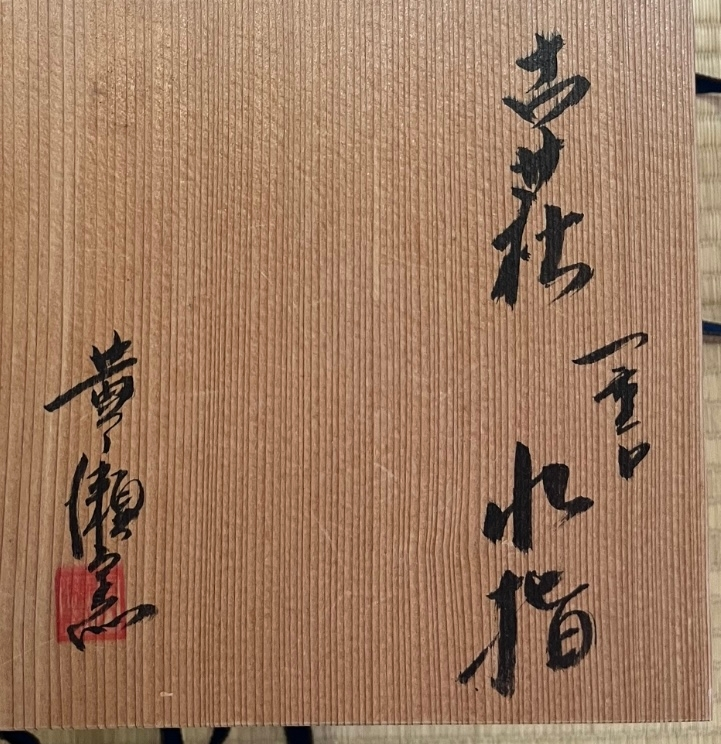 古萩
一重口
水指
黄瀬窯